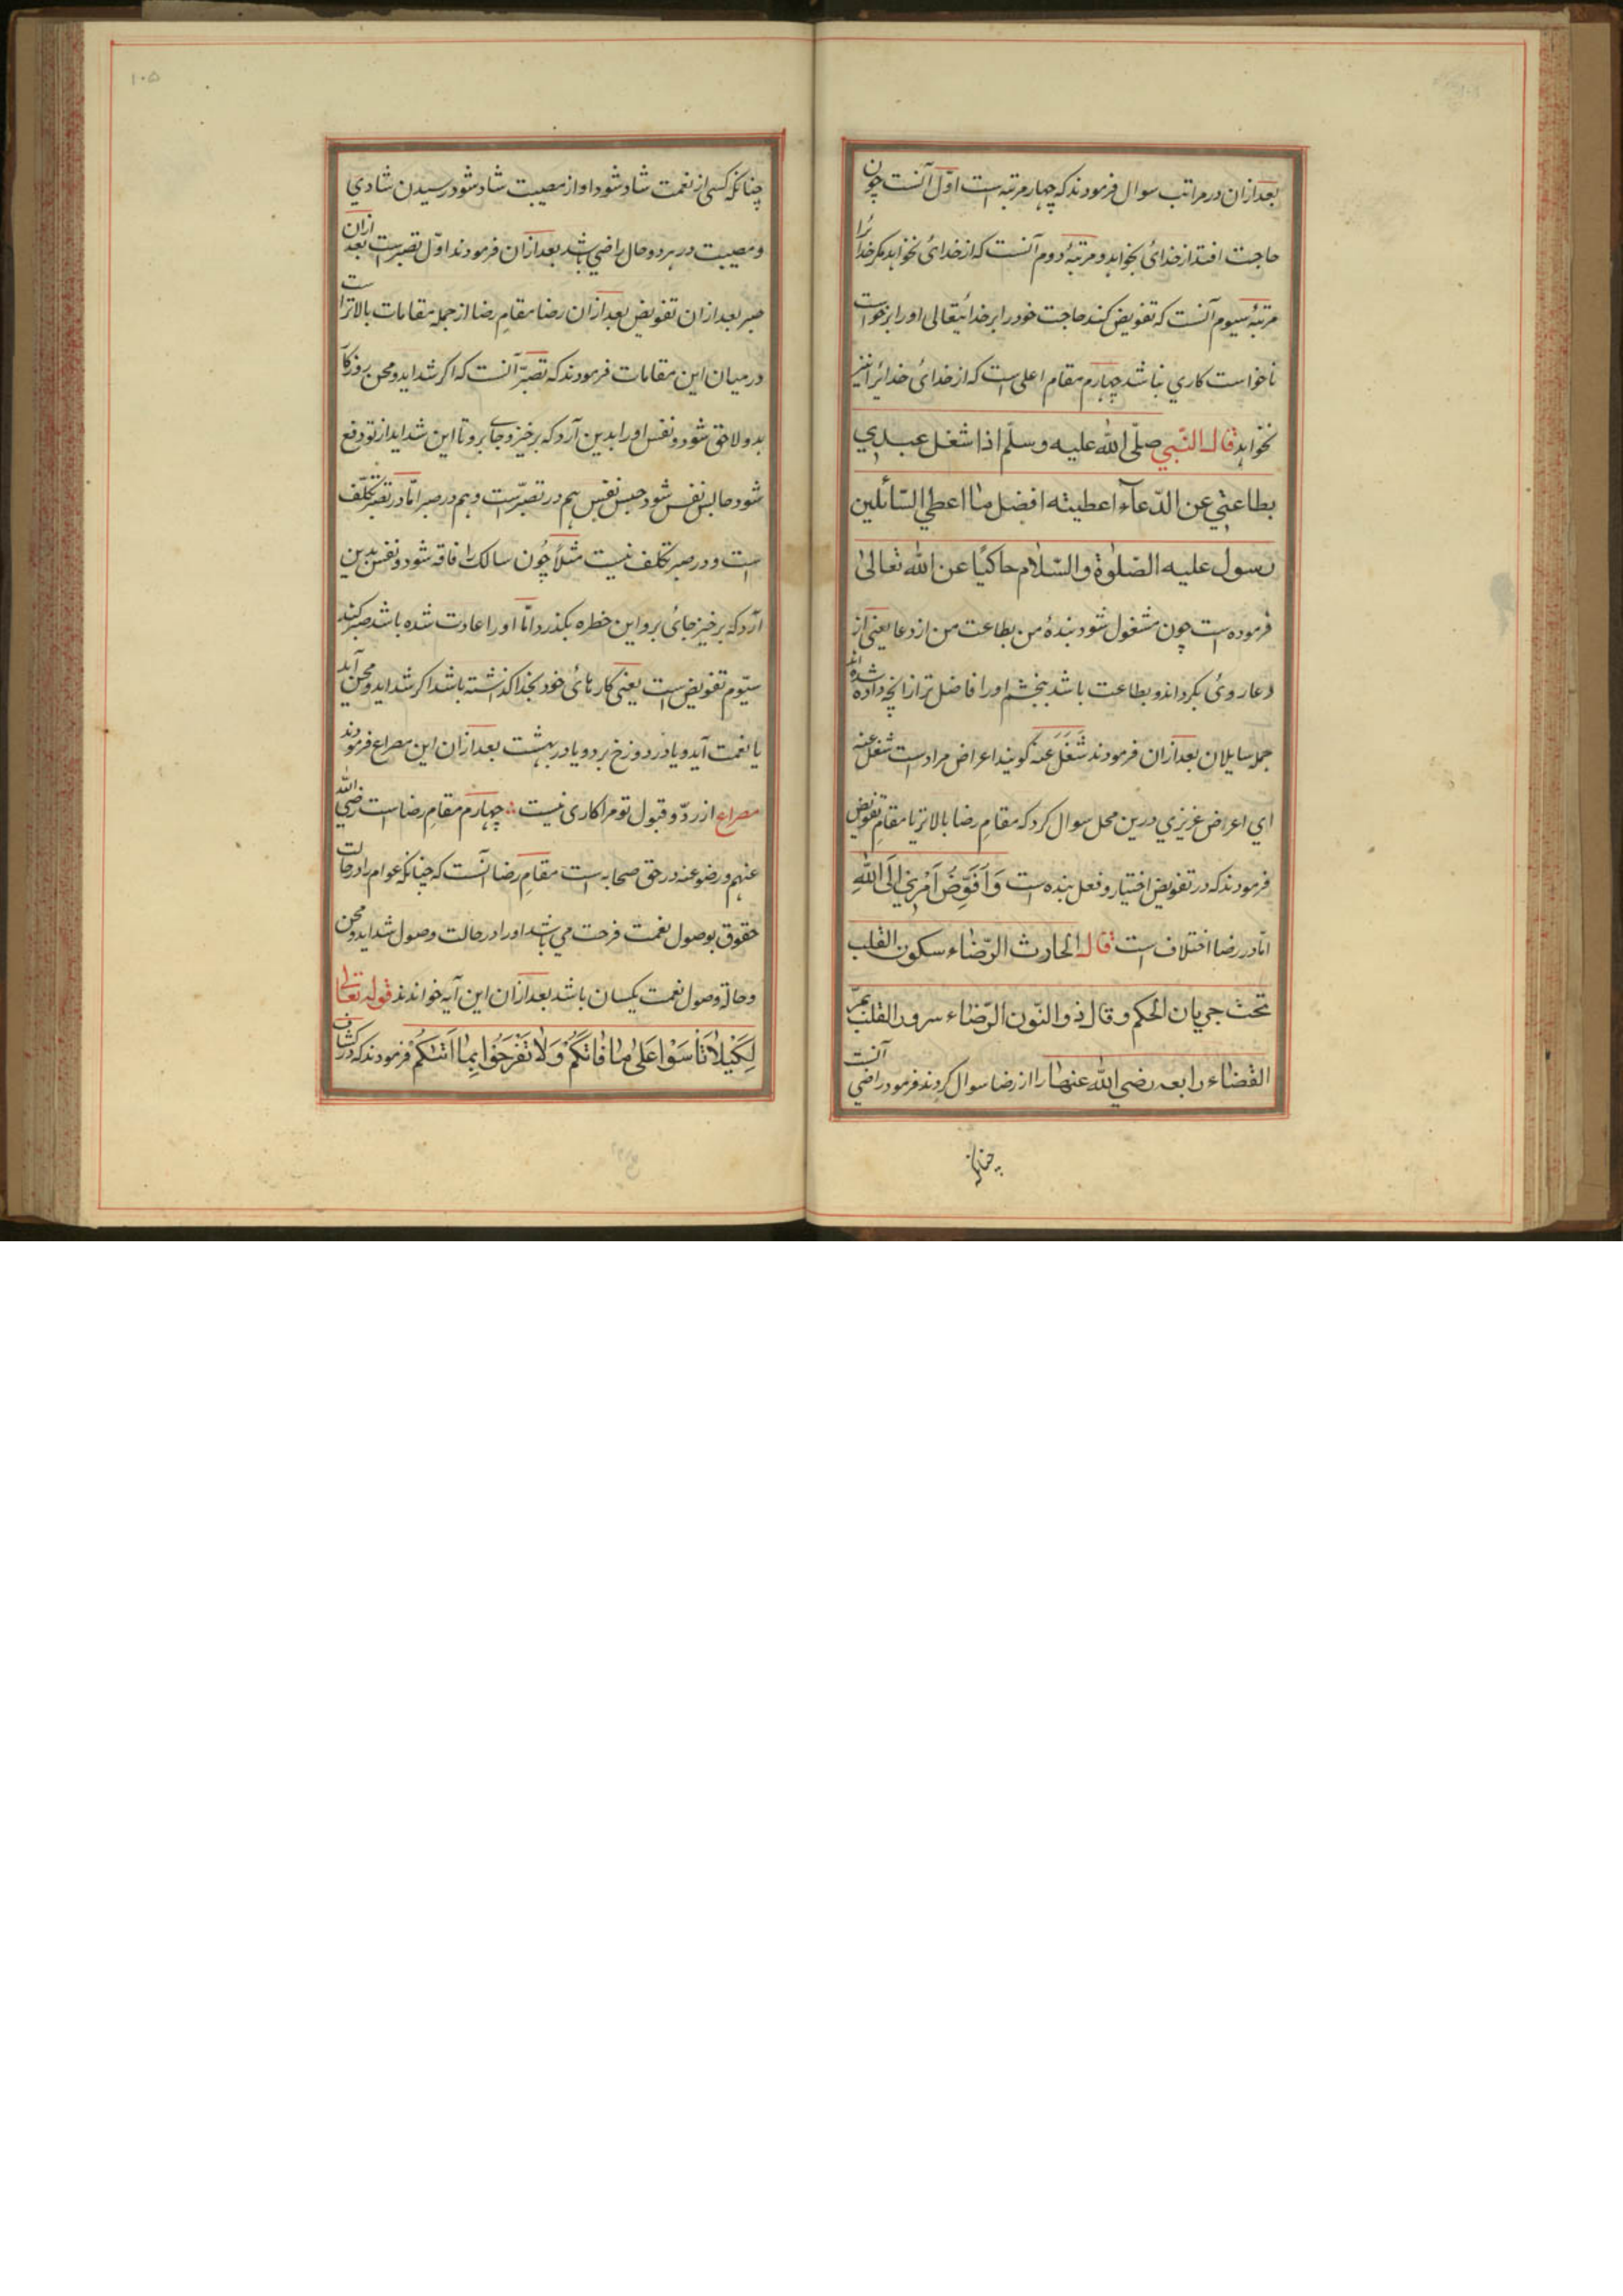 بعد ازان در مراتب سوال فرمودند که چهار مرتبه است اوّل آنست چون
حاجت افتد از خدائ بخواهد و مرتبهٔ دوم آنست که از خدائ نخواهد مکر خدائرا
مرتبهٔ سیوم آنست که تفویض کند حاجت خود را بر خدائیتعالی او را بر خواست
ناخواست کاری نباشد چهارم مقام اعلی است که از خدائ خدائرا نیز
نخواهد قال النّبي صلّی اللّه علیه وسلّم اذا شغل عبدي
بطاعتي عن الدّعآء اعطیته افضل ما اعطي السّائلین
رسول علیه الصّلوٰة والسّلام حاکیًا عن اللّه تعالیٰ
فرموده است چون مشغول شود بندهٔ من بطاعت من از دعا یعنی از
دعا روئ بکرداند و بطاعت باشد ببخشم او را فاضل تر ازانچه داده شده اند
جمله سایلان بعد ازان فرمودند شَغَلَ عنه کویند اعراض مراد است شغل عنه
اي اعراض عزیزي درین محل سوال کرد که مقامِ رضا بالاتر یا مقامِ تفویض
فرمودند که در تفویض اختیار و فعل بنده است وَاُفَوِّضُ اَمْرِيْ اِلَی اللّهِ
امّا در رضا اختلاف است قال الحارث الرّضاء سکون القلب
تحت جریان الحکم وقال ذو النّون الرّضاء سرور القلب بمرّ
القضاء رابعه رضي اللّه عنها را از رضا سوال کردند فرمود راضي آنست
چنانکه
۱۰۵
چنانکه کسی از نعمت شاد شود او از مصیبت شاد شود در رسیدن شادي
و مصیبت در هر دو حال راضي باشد بعد ازان فرمودند اوّل تصبّر است بعد ازان
صبر بعد ازان تفویض بعد ازان رضا مقامِ رضا از جمله مقامات بالاتر است
در میان این مقامات فرمودند که تصبّر آنست که اکر شداید و محن روزکار
بدو لاحق شود و نفس او را بدین آرد که برخیز و جاي برو تا این شداید از تو دفع
شود حابس نفس شود حبس نفس هم در تصبّر است و هم در صبر امّا در تصبّر تکلّف
است و در صبر تکلف نیست مثلاً چُون سالک را فاقه شود و نفس بدین
آرد که برخیز جائ برو این خطره بکذرد امّا او را عادت شده باشد صبر کند
سیّوم تفویض است یعنی کارهائ خود بخدا کذاشته باشد اکر شداید و محن آید
یا نعمت آید و یا در دوزخ برد و یا در بهشت بعد ازان این مصراع فرمودند
مصراع از ردّ و قبول تو مرا کاری نیست ∴ چهارم مقامِ رضا است رضي اللّه
عنهم ورضوعنه در حق صحابه است مقامِ رضا آنست که چنانکه عوام را در حالت
حقوق بوصول نعمت فرحت می باشد او را در حالت وصول شداید و محن
و حالة وصول نعمت یکسان باشد بعد ازان این آیه خواندند قوله تعالی
لِکَیْلاَ تَأْسَوْا عَلیٰ مَا فَاتَکُمْ وَلاَ تَفْرَحُوْا بِمَا اٰتٰکُمْ فرمودند که در کشاف